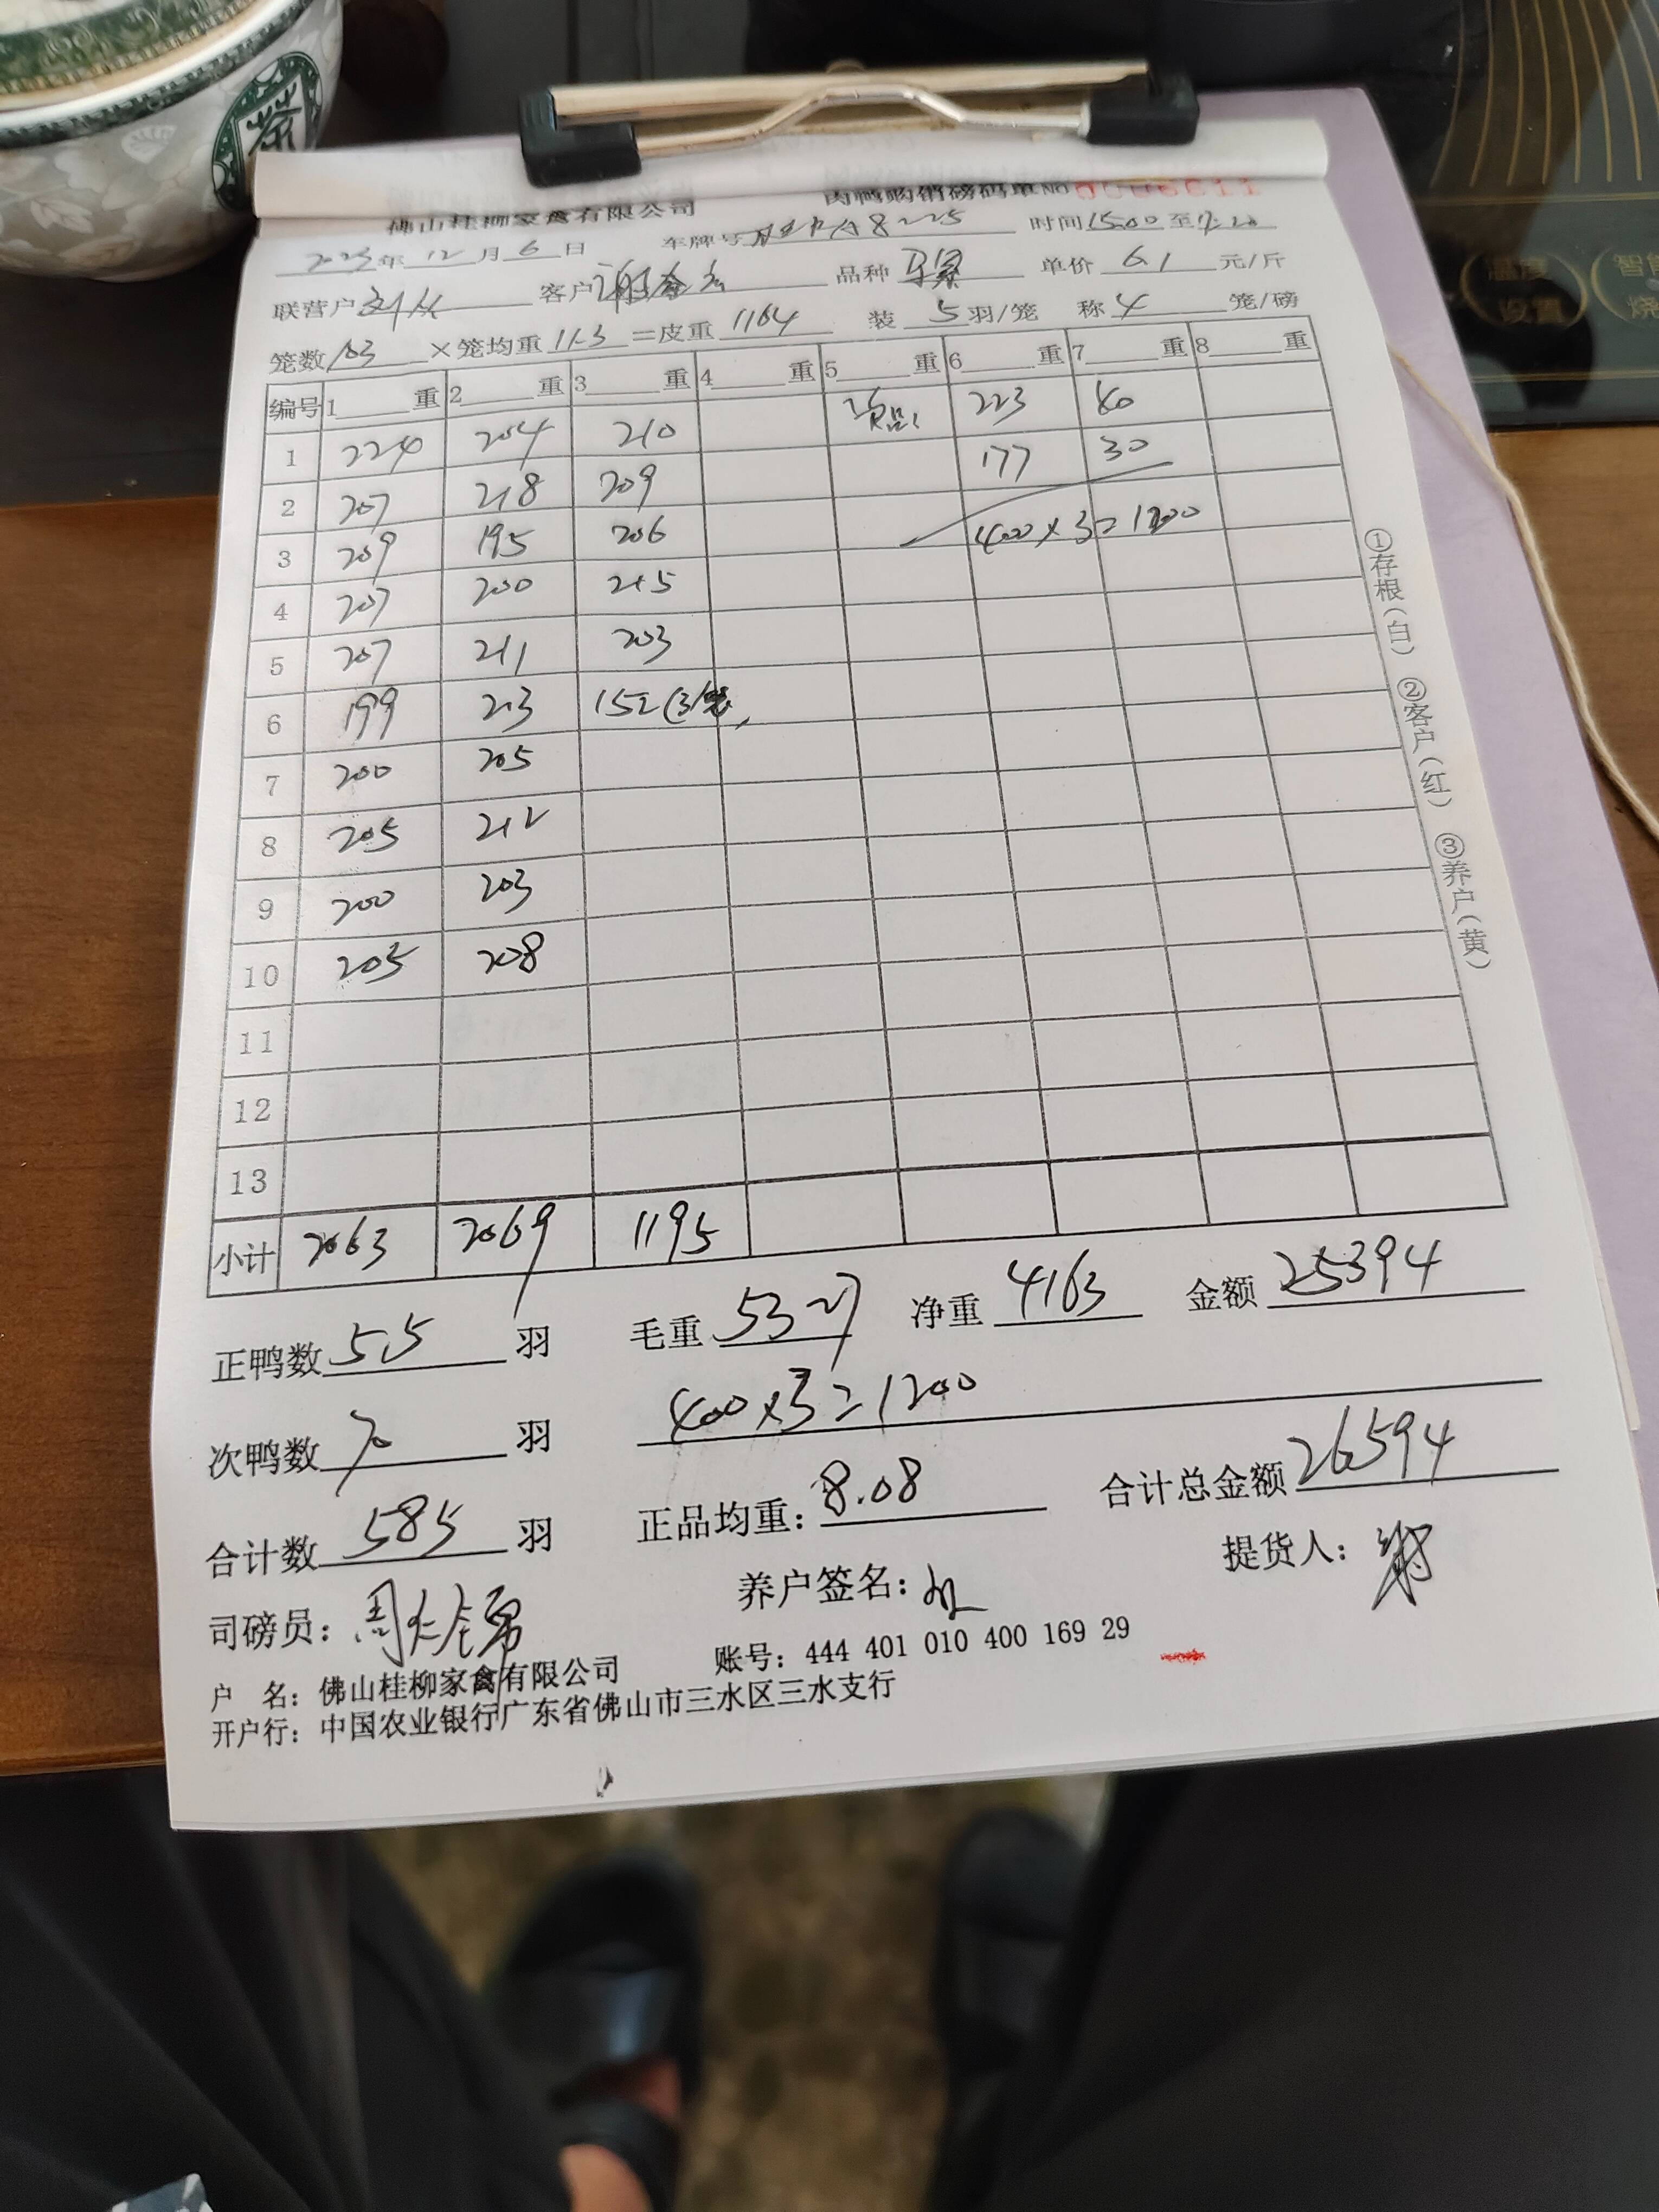 茶
温度
设置
智能
烧
肉鸭购销磅码单 NO 0006611
佛山桂柳家禽有限公司
2023年 12月 6日 车牌号 A8225 时间 15:00 至
联营户 客户 谢 品种 单价 6.1 元/斤
笼数 103 ×笼均重 11.3 =皮重 1164 装 5 羽/笼 称 4 笼/磅
编号 1 重 2 重 3 重 4 重 5 重 6 重 7 重 8 重
1 224 204 210 223 40
2 207 218 209 177 30
3 209 195 206 400×3=1200
4 207 200 215
5 207 211 203
6 199 213 152(3笼)
7 200 205
8 205 212
9 200 203
10 205 208
11
12
13
小计 2063 2069 1195
正鸭数 515 羽 毛重 5327 净重 4163 金额 25394
次鸭数 70 羽 400×3=1200
合计数 585 羽 正品均重: 8.08 合计总金额 26594
司磅员: 周 养户签名: 提货人:
户 名: 佛山桂柳家禽有限公司 账号: 444 401 010 400 169 29
开户行: 中国农业银行广东省佛山市三水区三水支行
①存根(白) ②客户(红) ③养户(黄)